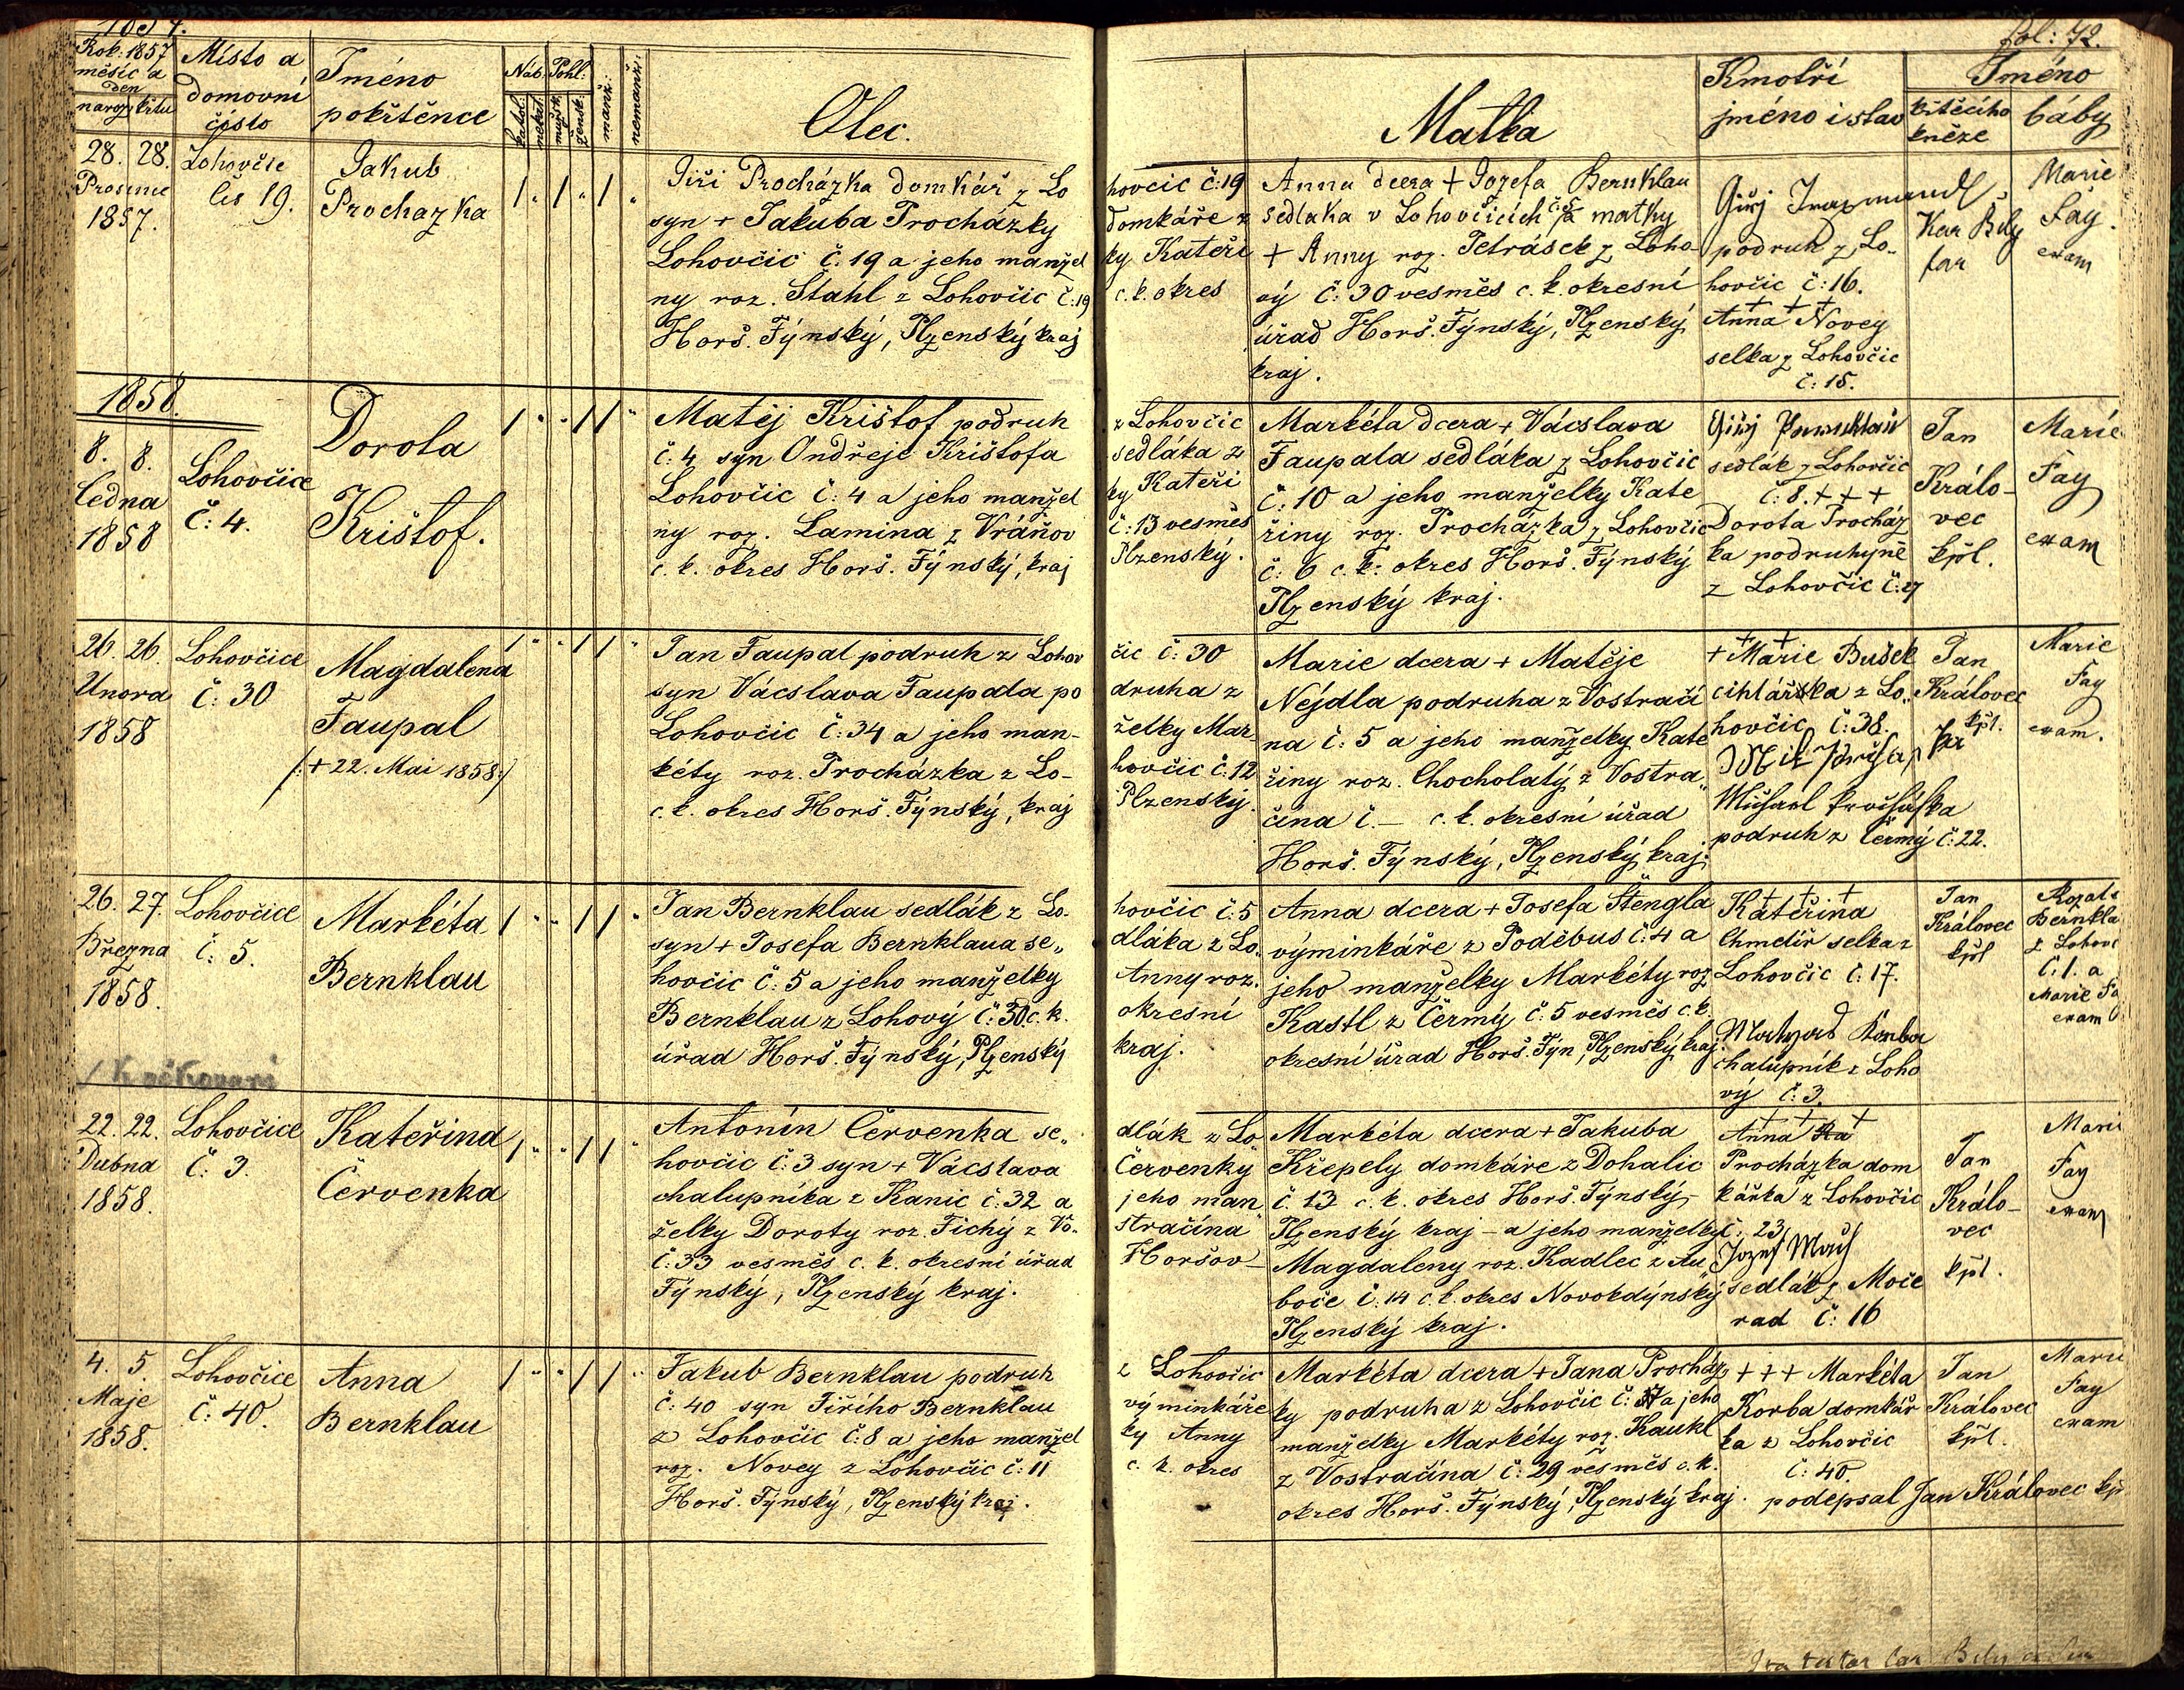 Fol: 72.
Rok: 1857
měsíc a
den
naroz. křtu
Místo a
domovní
číslo
Jméno
pokřtěnce
Náb.
katol:
nekat.
Pohl:
mužsk.
žensk:
manž.:
nemanž:
Otec.
Matka
Kmotři
jméno i stav
Jméno
křtěcího
kněze
báby
28. 28.
Prosince
1857.
Lohovčic
čís 19.
Jakub
Prochazka
Jiří Procházka domkář z Lo hovčic č: 19
syn + Jakuba Procházky domkáře z
Lohovčic č. 19 a jeho manžel ky Kateři
ny roz. Stahl z Lohovčic č: 19 c. k. okres
Horš. Týnský, Plzenský kraj
Anna dcera + Jozefa Bernklau
sedlaka v Lohovčicích č 5 a matky
+ Anny roz. Petrásek z Loho
vý č: 30 vesměs c. k. okresní
úřad Horš. Týnský, Plzenský
kraj.
podruh z Lo-
hovčic č: 16.
+ + +
Anna Novey
selka z Lohovčic
č: 15.
Kar Bily
far
Marie
Fay.
exam
1858.
8. 8.
ledna
1858
Lohovčice
č: 4.
Dorota
Krištof.
Matěj Krištof podruh z Lohovčic
č: 4 syn Ondřeje Krištofa sedláka z
Lohovčic č: 4 a jeho manžel ky Kateři
ny roz. Lamina z Vráňov č: 13 vesměs
c. k. okres Horš. Týnský, kraj Plzenský.
Markéta dcera + Vácslava
Taupala sedláka z Lohovčic
č: 10 a jeho manželky Kate
řiny roz. Procházka z Lohovčic
č: 6 c. k. okres Horš. Týnský
Plzenský kraj.
sedlák z Lohovčic
č: 8. + + +
Dorota Procház
ka podruhyně
z Lohovčic č: 27
Jan
Králo-
vec
kpl.
Marie
Fay
exam
26. 26.
Unora
1858
Lohovčice
č: 30
Magdalena
Taupal
/: + 22. Mai 1858 :/
Jan Taupal podruh z Lohov čic č: 30
syn Vácslava Taupala po druha z
Lohovčic č: 34 a jeho man- želky Mar
kéty roz. Procházka z Lo- hovčic č: 12
c. k. okres Horš. Týnský, kraj Plzenský.
Marie dcera + Matěje
Nejdla podruha z Vostrači
na č: 5 a jeho manželky Kate
řiny roz. Chocholatý z Vostra„
čina č. — c. k. okresní úřad
Horš. Týnský, Plzenský kraj.
+ + + Marie Bušek
cihlářka z Lo„
hovčic č: 38.
podruh z Čermý č: 22.
Jan
Královec
kpl.
Marie
Fay
exam.
26. 27.
Března
1858.
Lohovčice
č: 5.
Markéta
Bernklau
Jan Bernklau sedlák z Lo- hovčic č: 5
syn + Josefa Bernklaua se„ dláka z Lo„
hovčic č: 5 a jeho manželky Anny roz.
Bernklau z Lohový č: 30 c. k. okresní
úřad Horš. Týnský, Plzenský kraj.
Anna dcera + Josefa Štengla
výminkáře z Poděbus č: 4 a
jeho manželky Markéty roz
Kastl z Čermý č: 5 vesměs c. k.
okresní úřad Horš. Týn, Plzenský kraj.
+ + +
Kateřina
Chmelíř selka z
Lohovčic č: 17.
chalupník z Loho
vý č: 3.
Jan
Královec
kpl
Bernkla
z Lohov
č: 1. a
Marie Fa
exam
22. 22.
Dubna
1858.
Lohovčice
č: 3.
Kateřina
Červenka
Antonín Červenka se„ dlák z Lo
hovčic č: 3 syn + Vácslava Červenky
chalupníka z Kanic č: 32 a jeho man
želky Doroty roz. Tichý z Vo- stračina
č: 33 vesměs c. k. okresní úřad Horšov-
Týnský, Plzenský kraj.
Markéta dcera + Jakuba
Křepely domkáře z Dohalic
č 13 c. k. okres Horš. Týnský,
Plzenský kraj – a jeho manželky
Magdaleny roz. Kadlec z Au
boče č: 14 c. k. okres Novokdýnský
Plzenský kraj.
+ + +
Anna
Procházka dom
kářka z Lohovčic
č: 23
sedlák z Moče
rad č: 16
Jan
Králo-
vec
kpl.
Mari
Fay
exam
4. 5.
Maje
1858.
Lohovčice
č: 40.
Anna
Bernklau
Jakub Bernklau podruh z Lohovčic
č: 40 syn Jiřího Bernklau výminkáře
z Lohovčic č: 8 a jeho manžel ky Anny
roz. Novey z Lohovčic č: 11 c. k. okres
Horš. Týnský, Plzenský kraj.
Markéta dcera + Jana Procház
ky podruha z Lohovčic a jeho
manželky Markéty roz. Kaukl
z Vostračína č: 29 vesměs c. k.
okres Horš. Týnský, Plzenský kraj.
+ + + Markéta
Korba domkář
ka z Lohovčic
č: 40.
podepsal Jan Královec kp
Jan
Královec
kpl.
Marie
Fay
exam